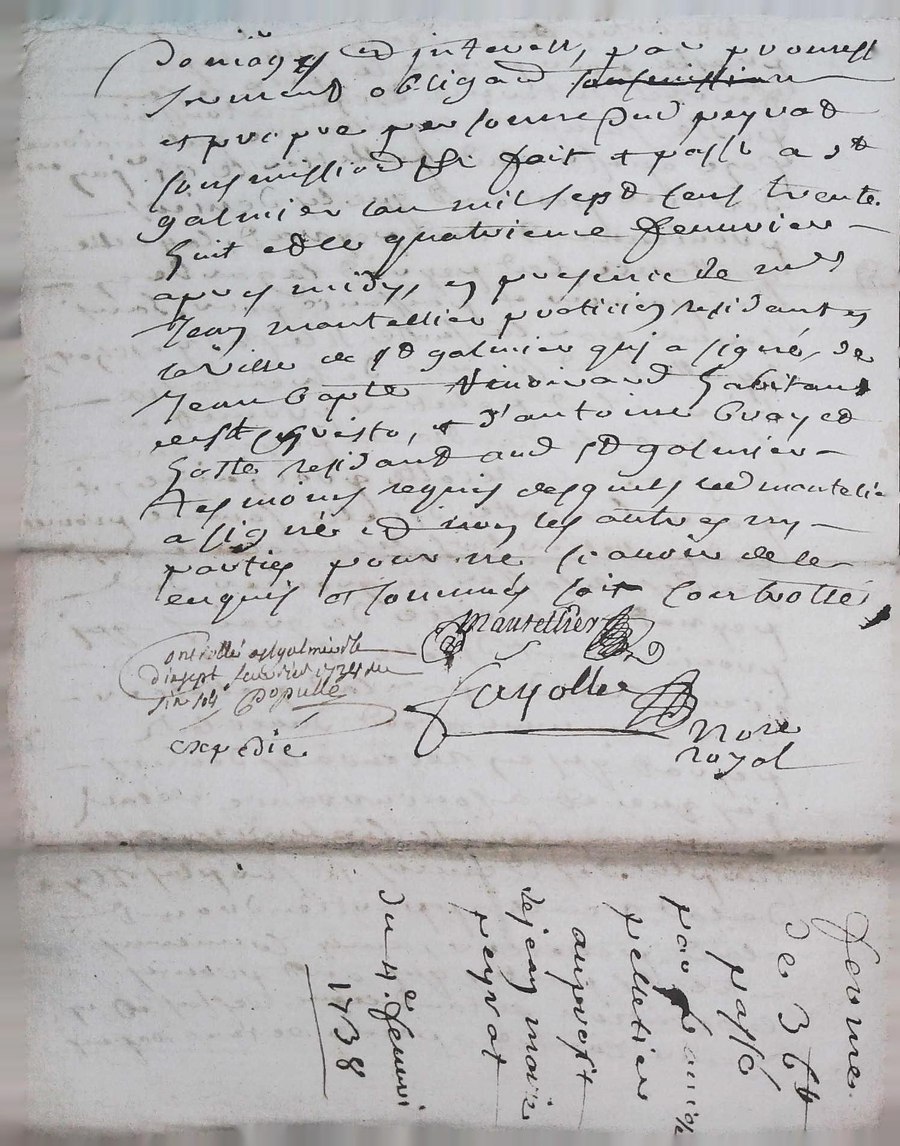 domages et jnterest, par pr
serment obligaõn sousmission
et propre personne dud peyrat
sousmission &c fait & passé a St
galmier lan mil sept cens trente
huit et le quatrieme feuvrier
apres midy, en presence de me
Jean mantellier praticien residant en
la ville de St galmier qui a signé, de
Jean bapte habitant
, & d'antoine
hoste residant aud St galmier
tesmoins requis desquels led mantelie
a signé et non les autres ny
parties pour ne scavoir de le
enquis et sommés soit controllé
Mantellier
Fayolle
Nore
royal
ontrollé a St galmier le
dixsept fevrier 1738
Populle
expedié
ferme
de 36
passé
par
pelletier
au proffit
de jean marie
peyrat
du 4e feuvri
1738